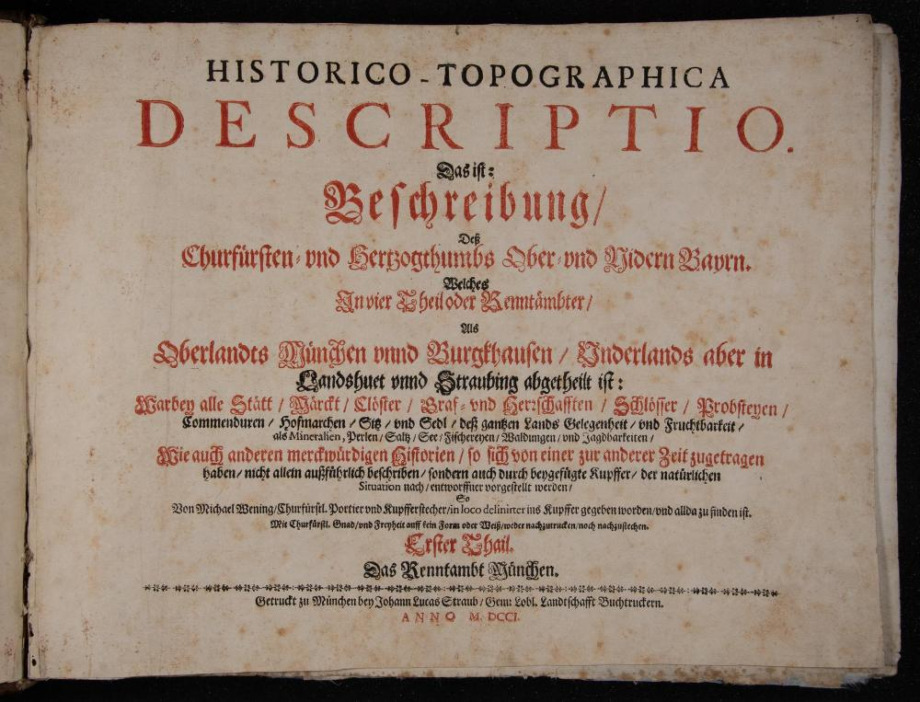 HISTORICO-TOPOGRAPHICA
DESCRIPTIO.
Das ist:
Beschreibung/
Deß
Churfürsten- vnd Hertzogthumbs Ober- vnd Nidern Bayrn.
Welches
In vier Theil oder Renntämbter/
Als
Oberlandts München vnnd Burgkhausen / Vnderlands aber in
Landshuet vnnd Straubing abgetheilt ist:
Warbey alle Stätt / Märckt / Clöster / Graf- vnd Herrschafften / Schlösser / Probsteyen /
Commenduren / Hofmarchen / Sitz / vnd Sedl / deß gantzen Lands Gelegenheit / vnd Fruchtbarkeit /
als Mineralien, Perlen / Saltz / See / Fischereyen / Waldungen / vnd Jagdbarkeiten /
Wie auch anderen merckwürdigen Historien / so sich von einer zur anderer Zeit zugetragen
haben / nicht allein außführlich beschriben / sondern auch durch beygefügte Kupffer / der natürlichen
Situation nach / entworffner vorgestellt werden /
So
Von Michael Wening / Churfürstl. Portier vnd Kupfferstecher / in loco delinirter ins Kupffer gegeben worden / vnd allda zu finden ist.
Mit Churfürstl. Gnad / vnd Freyheit auff kein Form oder Weiß / weder nachzutrucken / noch nachzustechen.
Erster Thail.
Das Renntambt München.
Getruckt zu München bey Johann Lucas Straub / Gem: Lobl. Landtschafft Buchtruckern.
ANNO M. DCCI.